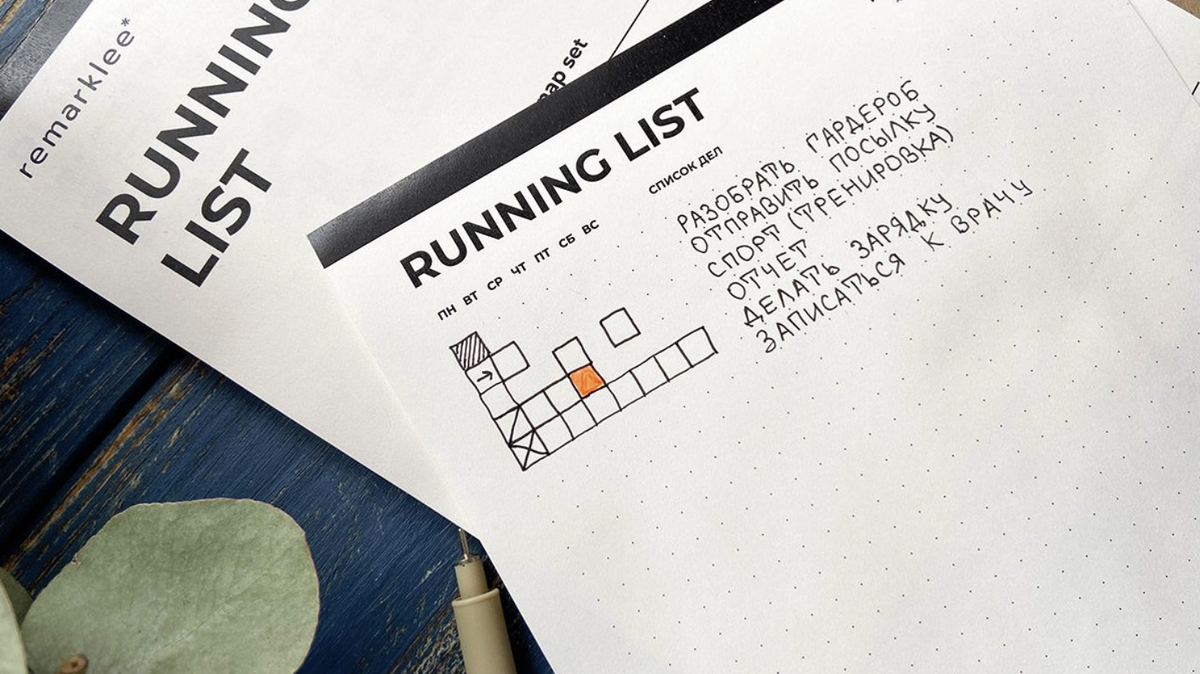 remarklee*
RUNNING
LIST
RUNNING LIST
список дел
ПН ВТ СР ЧТ ПТ СБ ВС
РАЗОБРАТЬ ГАРДЕРОБ
ОТПРАВИТЬ ПОСЫЛКУ
СПОРТ (ТРЕНИРОВКА)
ОТЧЕТ
ДЕЛАТЬ ЗАРЯДКУ
ЗАПИСАТЬСЯ К ВРАЧУ
set